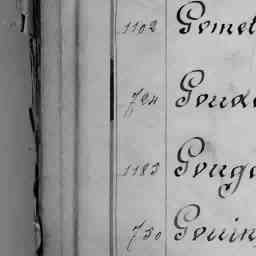 1102 Gomet
724 Goux
1183 Gouga
750 Gouin